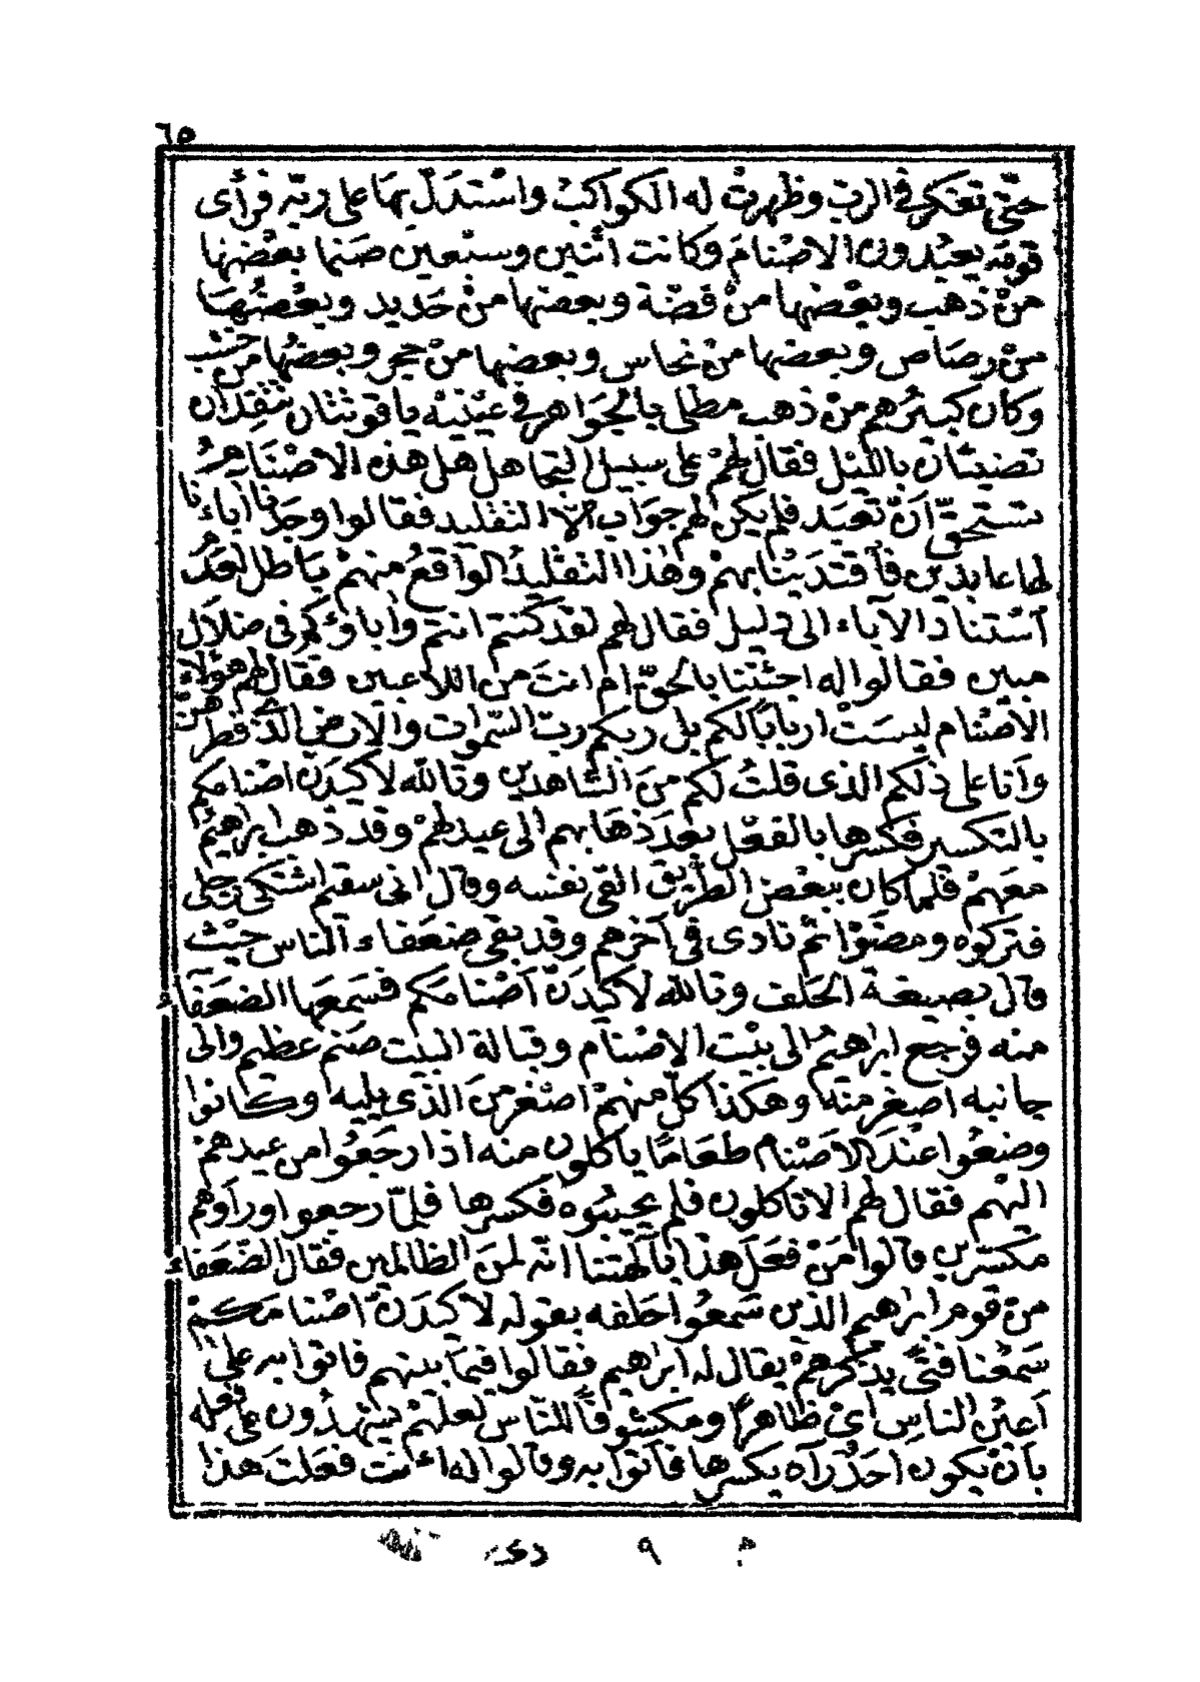 ٦٥
حتّى تفكر فى الرب وظهرت له الكواكب واستدلّ بها على ربّه فرأى
قومه يعبدون الاصنام وكانت اثنين وسبعين صنما بعضها
من ذهب وبعضها من فضّة وبعضها من حديد وبعضها
من رصاص وبعضها من نحاس وبعضها من حجر وبعضها من خشب
وكان كبيرهم من ذهب مطلى بالجواهر فى عينيه ياقوتتان تتقدان
تضيئان بالليل فقال لهم على سبيل التجاهل هل هذه الاصنام
تستحقّ أن تعبد فلم يكن لهم جواب الّا التقليد فقالوا وجدنا اباءنا
لها عابدين فأقتدينا بهم وهذا التقليد الواقع منهم باطل لعدم
أستناد الآباء الى دليل فقال لهم لقد كنتم انتم وأباؤكم فى ضلال
مبين فقالوا له اجئتنا بالحقّ ام انت من اللاعبين فقال لهم هؤلاء
الأصنام ليست اربابا لكم بل ربكم ربّ السّموات والارض الّذى فطرهنّ
وأنا على ذلكم الذى قلت لكم من الشاهدين وتالله لأكيدنّ اصنامكم
بالتكسير فكسرها بالفعل بعد ذهابهم الى عيد لهم وقد ذهب ابراهيم
معهم فلما كان ببعض الطريق القى نفسه وقال انى سقيم اشتكى رجلى
فتركوه ومضوا ثم نادى فى آخرهم وقد بقى ضعفاء الناس حيث
قال بصيغة الحلف وتالله لأكيدنّ أصنامكم فسمعها الضعفاء
منه فرجع ابراهيم الى بيت الاصنام وقبالة البيت صنم عظيم والى
جانبه اصغر منه وهكذا كلّ منهم اصغر من الذى يليه وكانوا
وضعوا عند الاصنام طعاما يأكلون منه اذا رجعوا من عيدهم
اليهم فقال لهم الا تأكلون فلم يجيبوه فكسرها فلمّا رجعوا ورأوهم
مكسرين قالوا من فعل هذا بآلهتنا انّه لمن الظالمين فقال الضعفاء
من قوم ابراهيم الذين سمعوا حلفه بقوله لأكيدنّ اصنامكم
سمعنا فتى يذكرهم يقال له ابراهيم فقالوا فيما بينهم فاتوا به على
أعين الناس أى ظاهرا ومكشوفا للنّاس لعلهم يشهدون على فعله
بأن يكون احد رآه يكسرها فأتوا به وقالوا له اءنت فعلت هذا
م ٩